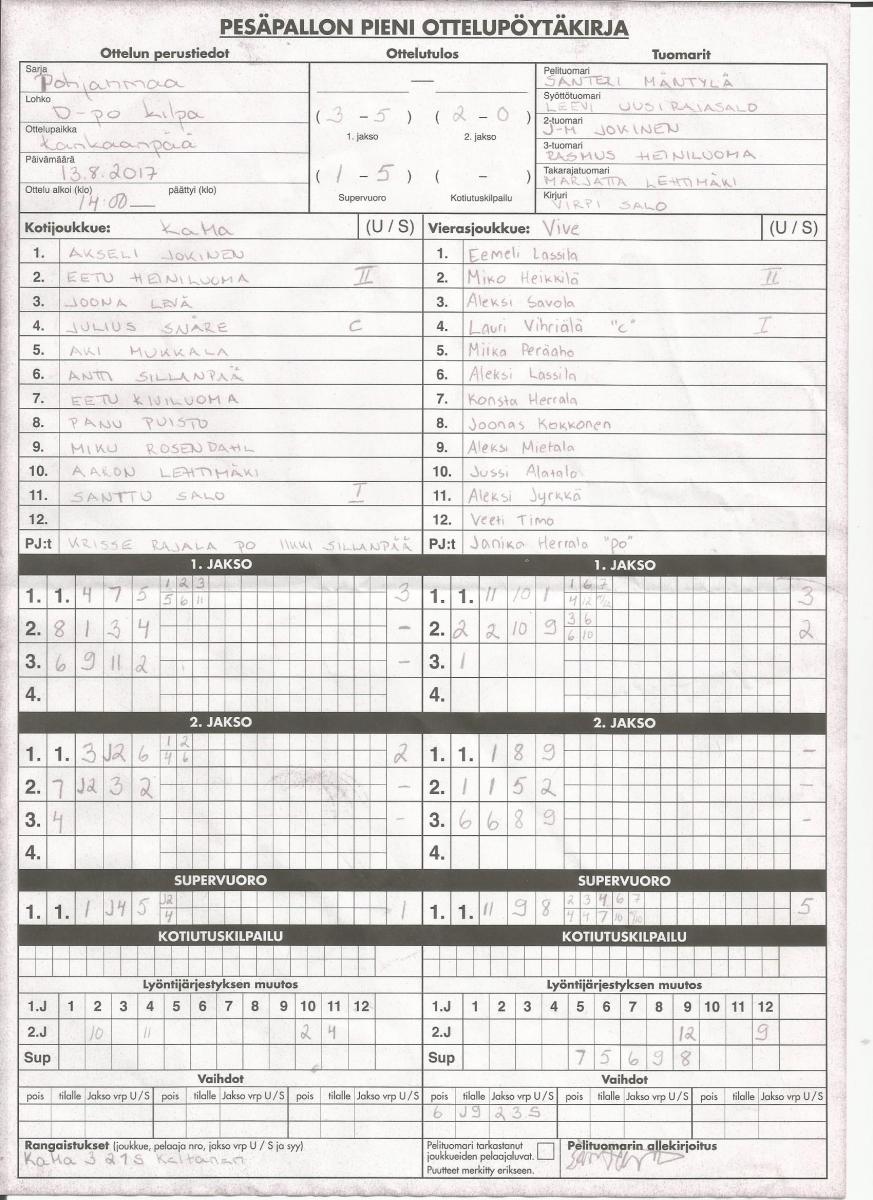 PESÄPALLON PIENI OTTELUPÖYTÄKIRJA
Ottelun perustiedot Ottelutulos Tuomarit
Sarja Pohjanmaa
Lohko D-po kilpa
Ottelupaikka Kankaanpää
Päivämäärä 13.8.2017
Ottelu alkoi (klo) 14:00 päättyi (klo)
—
( 3 - 5 ) ( 2 - 0 )
1. jakso 2. jakso
( 1 - 5 ) ( - )
Supervuoro Kotiutuskilpailu
Pelituomari SANTERI MÄNTYLÄ
Syöttötuomari LEEVI UUSIRAJASALO
2-tuomari J-M JOKINEN
3-tuomari RASMUS HEINILUOMA
Takarajatuomari MARJATTA LEHTIMÄKI
Kirjuri VIRPI SALO
Kotijoukkue: KaMa (U / S)
1. AKSELI JOKINEN
2. EETU HEINILUOMA II
3. JOONA LEVÄ
4. JULIUS SNÅRE C
5. AKI MUKKALA
6. ANTTI SILLANPÄÄ
7. EETU KIVILUOMA
8. PANU PUISTO
9. MIKU ROSENDAHL
10. AARON LEHTIMÄKI
11. SANTTU SALO I
12.
PJ:t KRISSE RAJALA PO IIKKI SILLANPÄÄ
Vierasjoukkue: Vive (U / S)
1. Eemeli Lassila
2. Miko Heikkilä II
3. Aleksi Savola
4. Lauri Vihriälä "c" I
5. Miika Peräaho
6. Aleksi Lassila
7. Konsta Herrala
8. Joonas Kokkonen
9. Aleksi Mietala
10. Jussi Alatalo
11. Aleksi Jyrkkä
12. Veeti Timo
PJ:t Janika Herrala "po"
1. JAKSO
1. 1. 4 7 5 1 2 3 3
5 6 11
2. 8 1 3 4 -
3. 6 9 11 2 -
4.
1. JAKSO
1. 1. 11 10 1 1 6 7 3
4 12
2. 2 2 10 9 3 6 2
6 10
3. 1
4.
2. JAKSO
1. 1. 3 J2 6 1 2 2
4 6
2. 7 J2 3 2 -
3. 4 -
4.
2. JAKSO
1. 1. 1 8 9 -
2. 1 1 5 2 -
3. 6 6 8 9 -
4.
SUPERVUORO
1. 1. 1 J4 5 J2 1
4
SUPERVUORO
1. 1. 11 9 8 2 3 4 6 7 5
4 4 7 10
KOTIUTUSKILPAILU KOTIUTUSKILPAILU
Lyöntijärjestyksen muutos
1.J 1 2 3 4 5 6 7 8 9 10 11 12
2.J 10 11 2 4
Sup
Lyöntijärjestyksen muutos
1.J 1 2 3 4 5 6 7 8 9 10 11 12
2.J 12 9
Sup 7 5 6 9 8
Vaihdot Vaihdot
pois tilalle Jakso vrp U / S pois tilalle Jakso vrp U / S pois tilalle Jakso vrp U / S
pois tilalle Jakso vrp U / S pois tilalle Jakso vrp U / S pois tilalle Jakso vrp U / S
6 J9 2 3 S
Rangaistukset (joukkue, pelaaja nro, jakso vrp U / S ja syy)
KaMa 3 2 1 S
Pelituomari tarkastanut
joukkueiden pelaajaluvat.
Puutteet merkitty erikseen.
Pelituomarin allekirjoitus